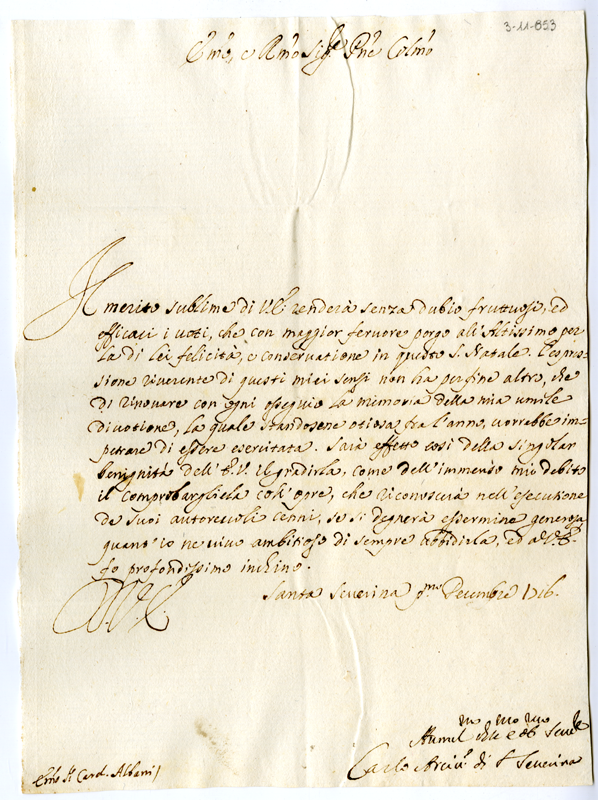 3-11-853
Em̃o, e Rm̃o Sig.re Pñe Colm̃o
Il merito sublime di V.E. renderà senza dubio fruttuosi, ed
efficaci i voti, che con maggior fervore porgo all'Altissimo per
la di lei felicità, e conservatione in questo S. Natale. L'espres-
sione riverente di questi miei sensi non ha per fine altro, che
di rinovare con ogni ossequio la memoria della mia umile
divotione, la quale standosene otiosa tra l'anno, vorrebbe im-
petrare di essere esercitata. Saià effetto così della singolar
benignità dell'E.V. il gradirla, come dell'immenso mio debito
il comprobargliela coll'opre, che riconoscerà nell'esecutione
de suoi autorevoli cenni, se si degnerà essermine generosa
quant'io ne vivo ambitioso di sempre obbidirla, ed a V.E.
fo profondissimo inchino.
Santa Severina p.mo Decembre 1716.
D. V. E.
Humil.mo ed obb. Serv.re
Carlo Arciv.o di S. Severina
Em̃o S. Card. Albani